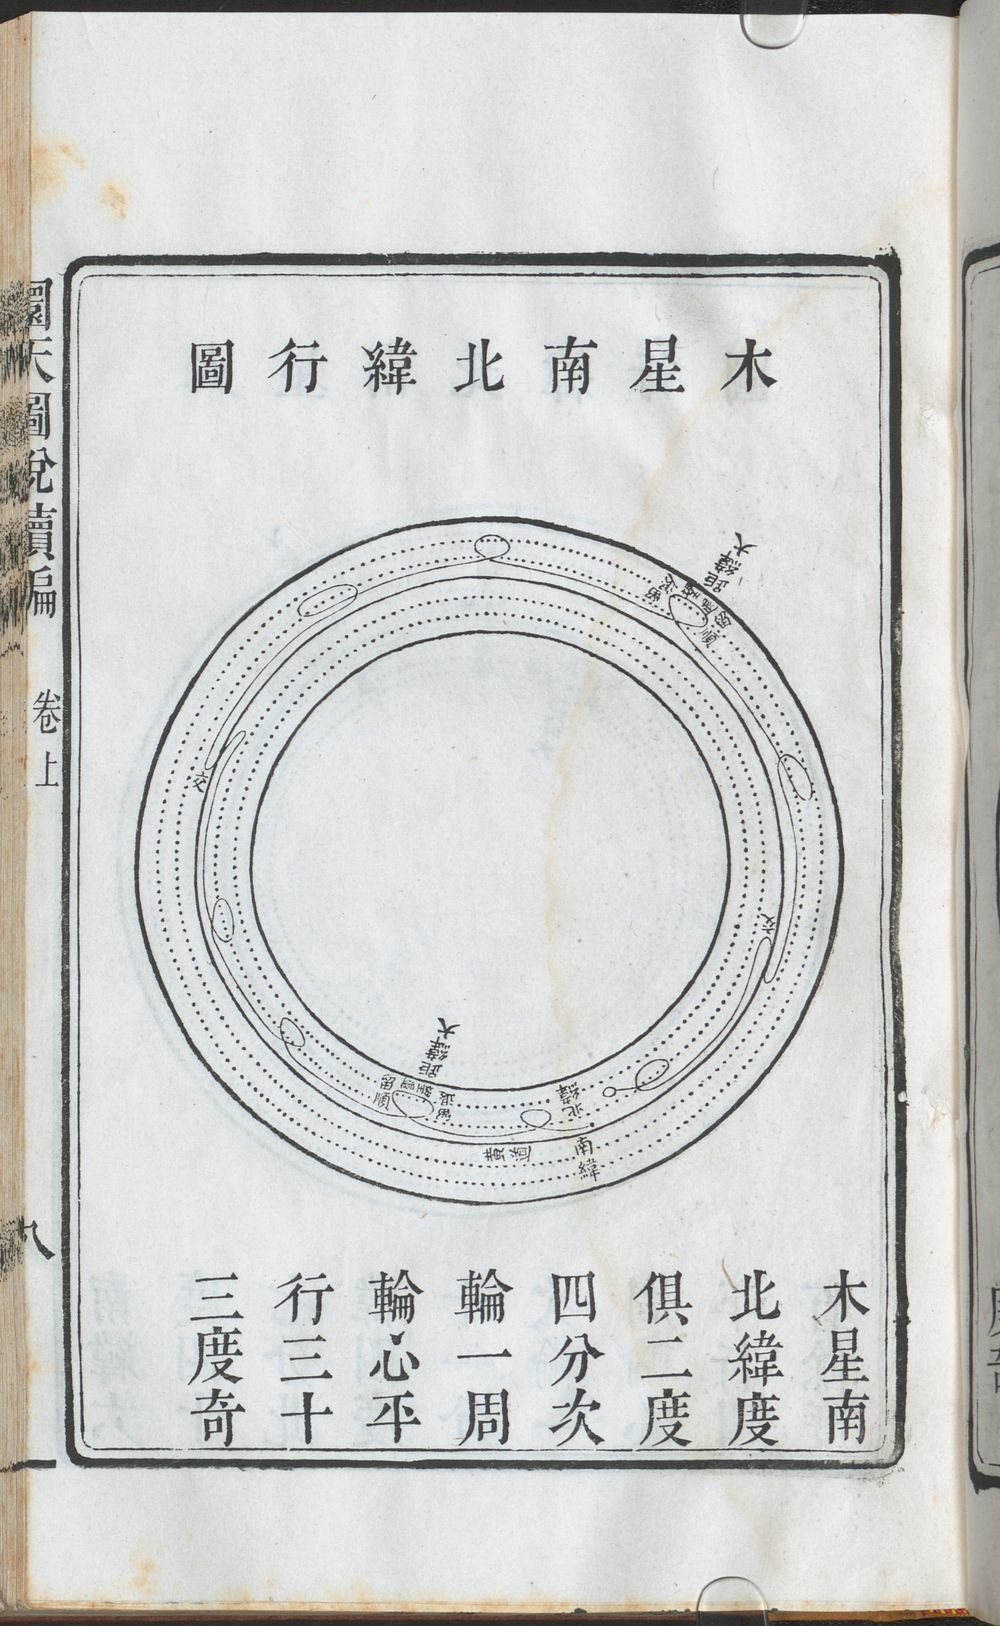 木星南北緯行圖
大緯距
留
退
留
順
交
交
大緯距
留
順
退
留
北緯
南緯
木星南
北緯度
俱二度
四分次
輪一周
輪心平
行三十
三度奇
圜天圖說續編
卷上
九